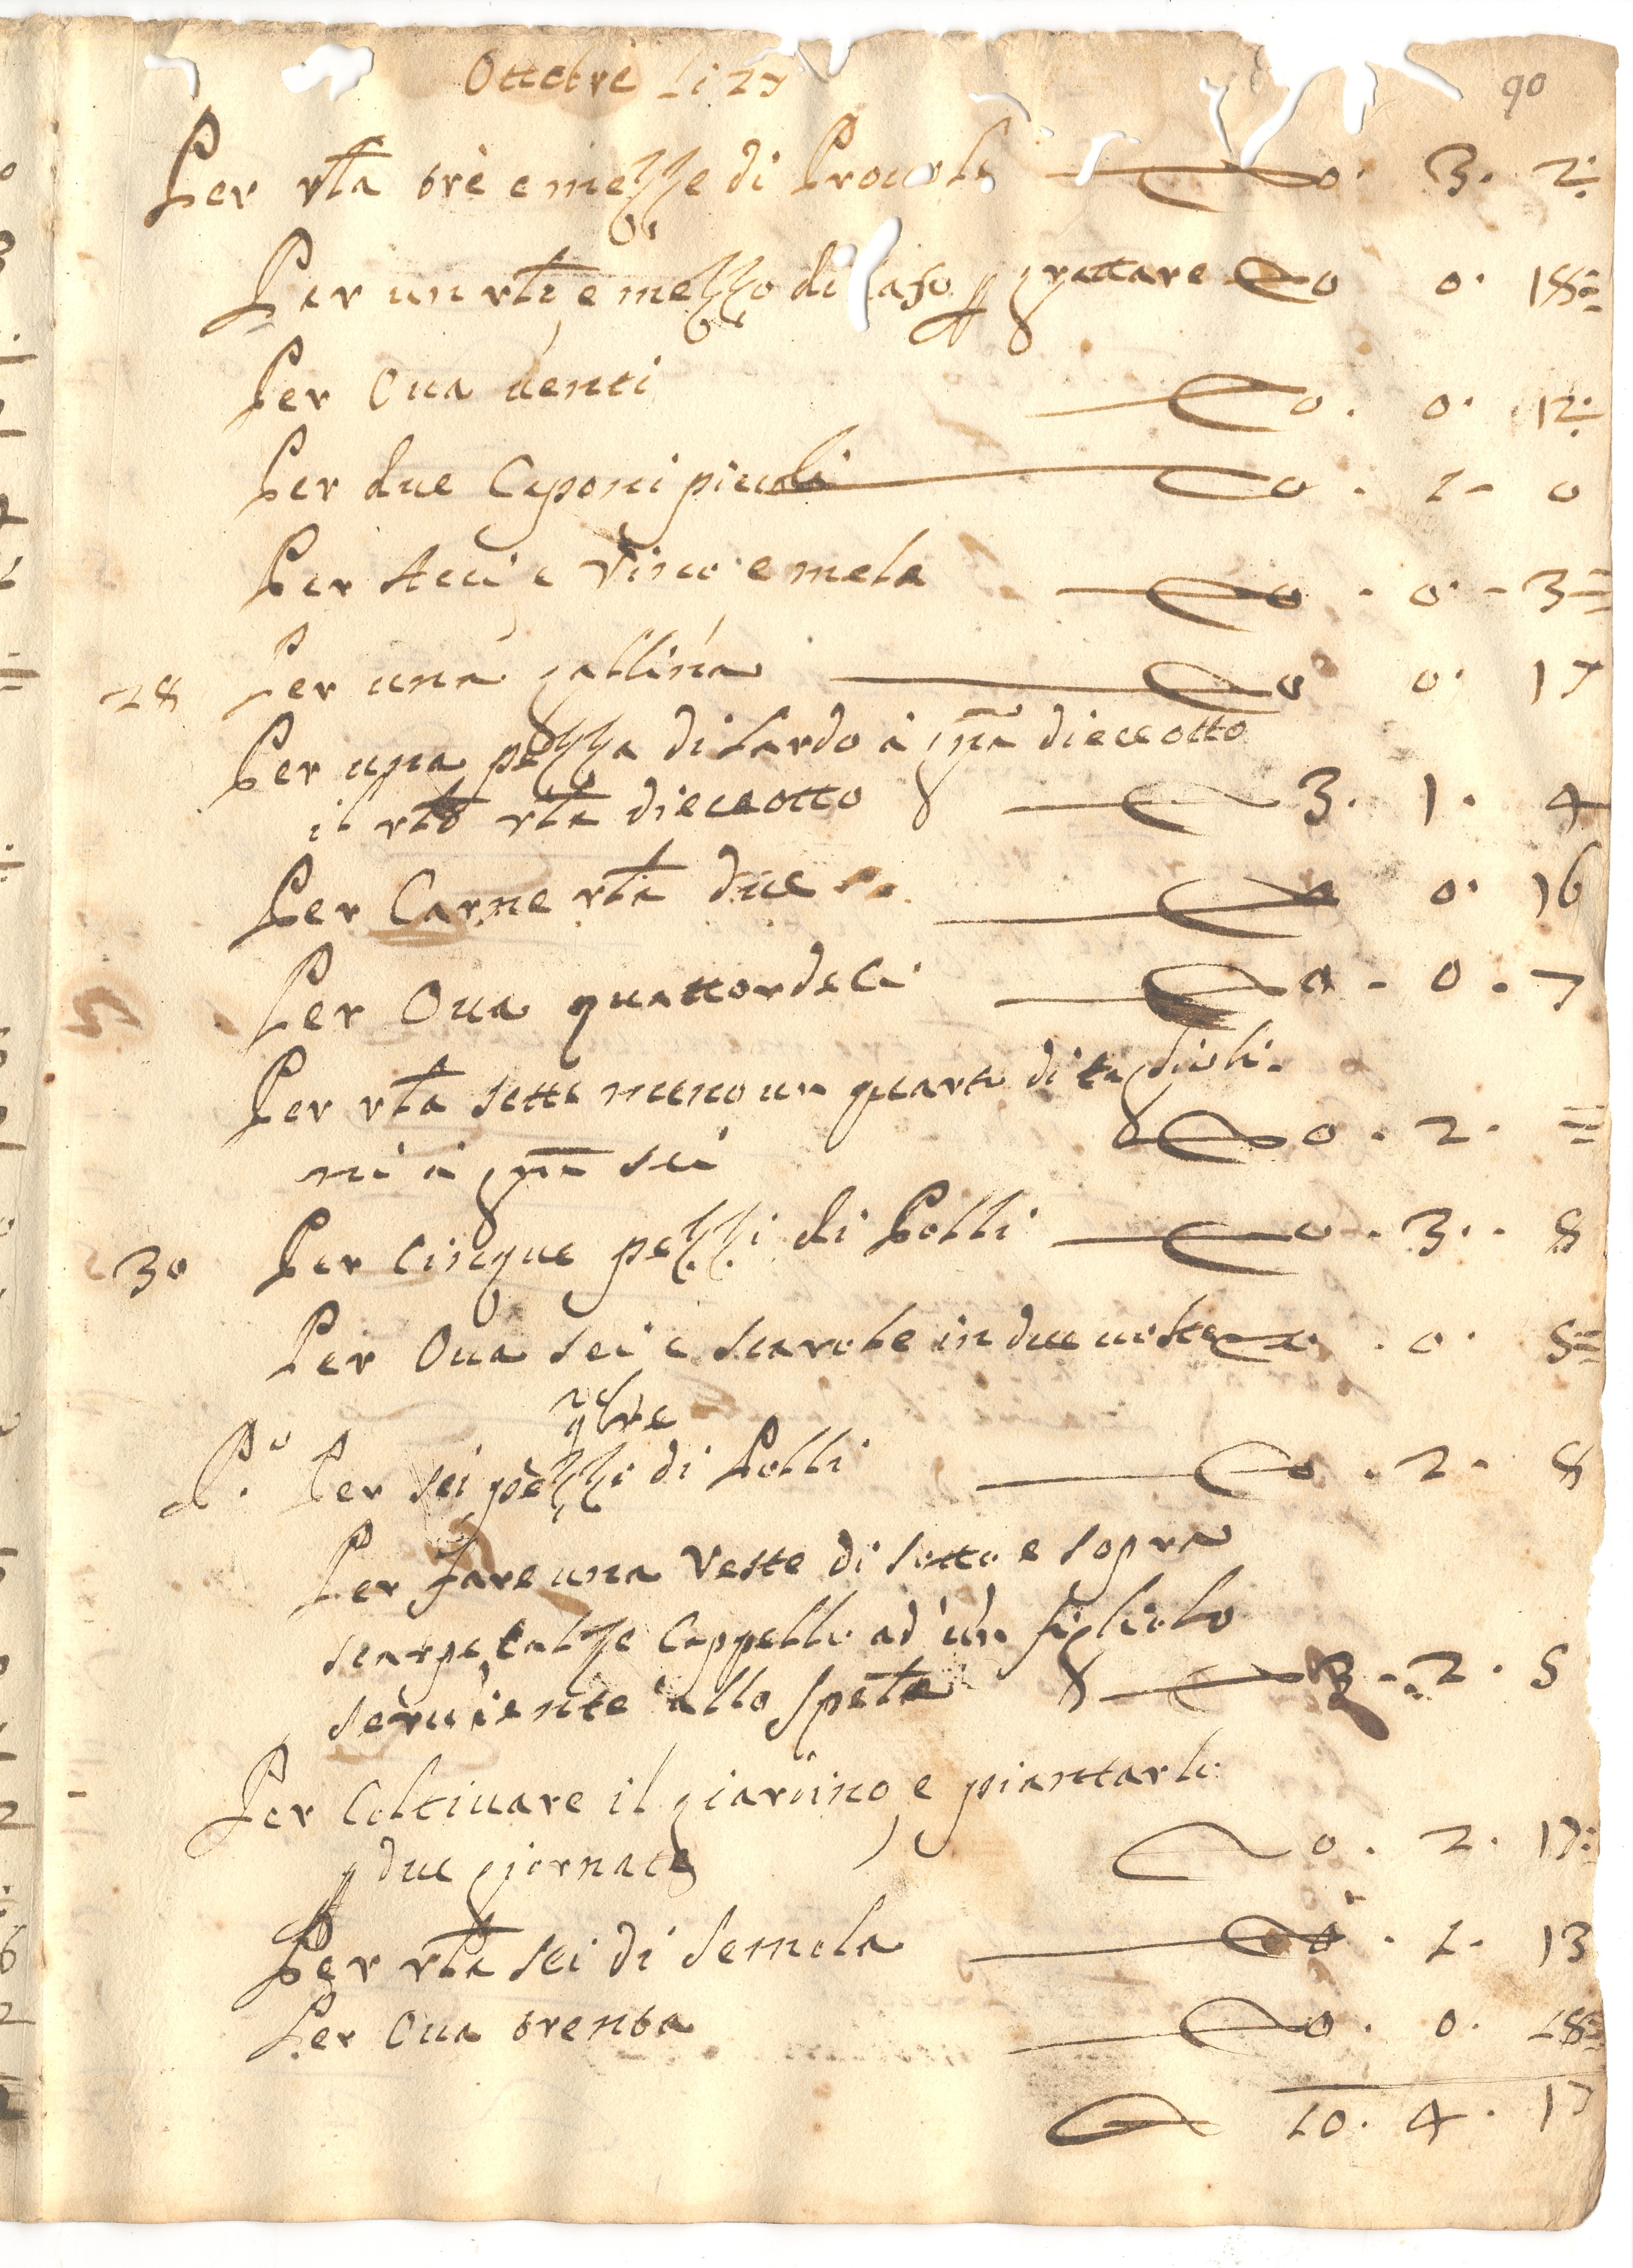 Ottobre li 27
90
Per rla tre e mezze di Prouole 0. 3. 2:
Per un rlo, e mezzo di Caso p grattare 0 0. 18=
Per Oua uenti 0. 0. 12:
Per due Caponi picoli 0. 1- 0
Per Acci e Vino e mela 0. 0. - 3=
28 Per una gallina 0 0. 17
Per una pezza di lardo à gna dieceotto
il rlo rla dieceotto 3. 1. 4
Per Carne rla due 0 0. 16
Per Oua quattordeci 0 - 0. 7
Per rla sette meno un quarto di tagliuli
ni à gna sei 0. 2. =
30 Per cinque pezzi di Polli 0. 3. 8
Per Oua sei e scarole in due uolte 0. 0. 5=
9bre
P.o Per sei pezzi di Polli 0. 2. 8
Per fare una Veste di sotto e sopra
scarpe, calze Cappello ad un figliolo
seruiente allo Spele 3. 2. 5
Per Coltiuare il giardino, e piantarlo
p due giornate 0. 2. 17:
Per rla sei di semola 0. 1. 13
Per Oua trenta 0. 0. 18=
10. 4. 17